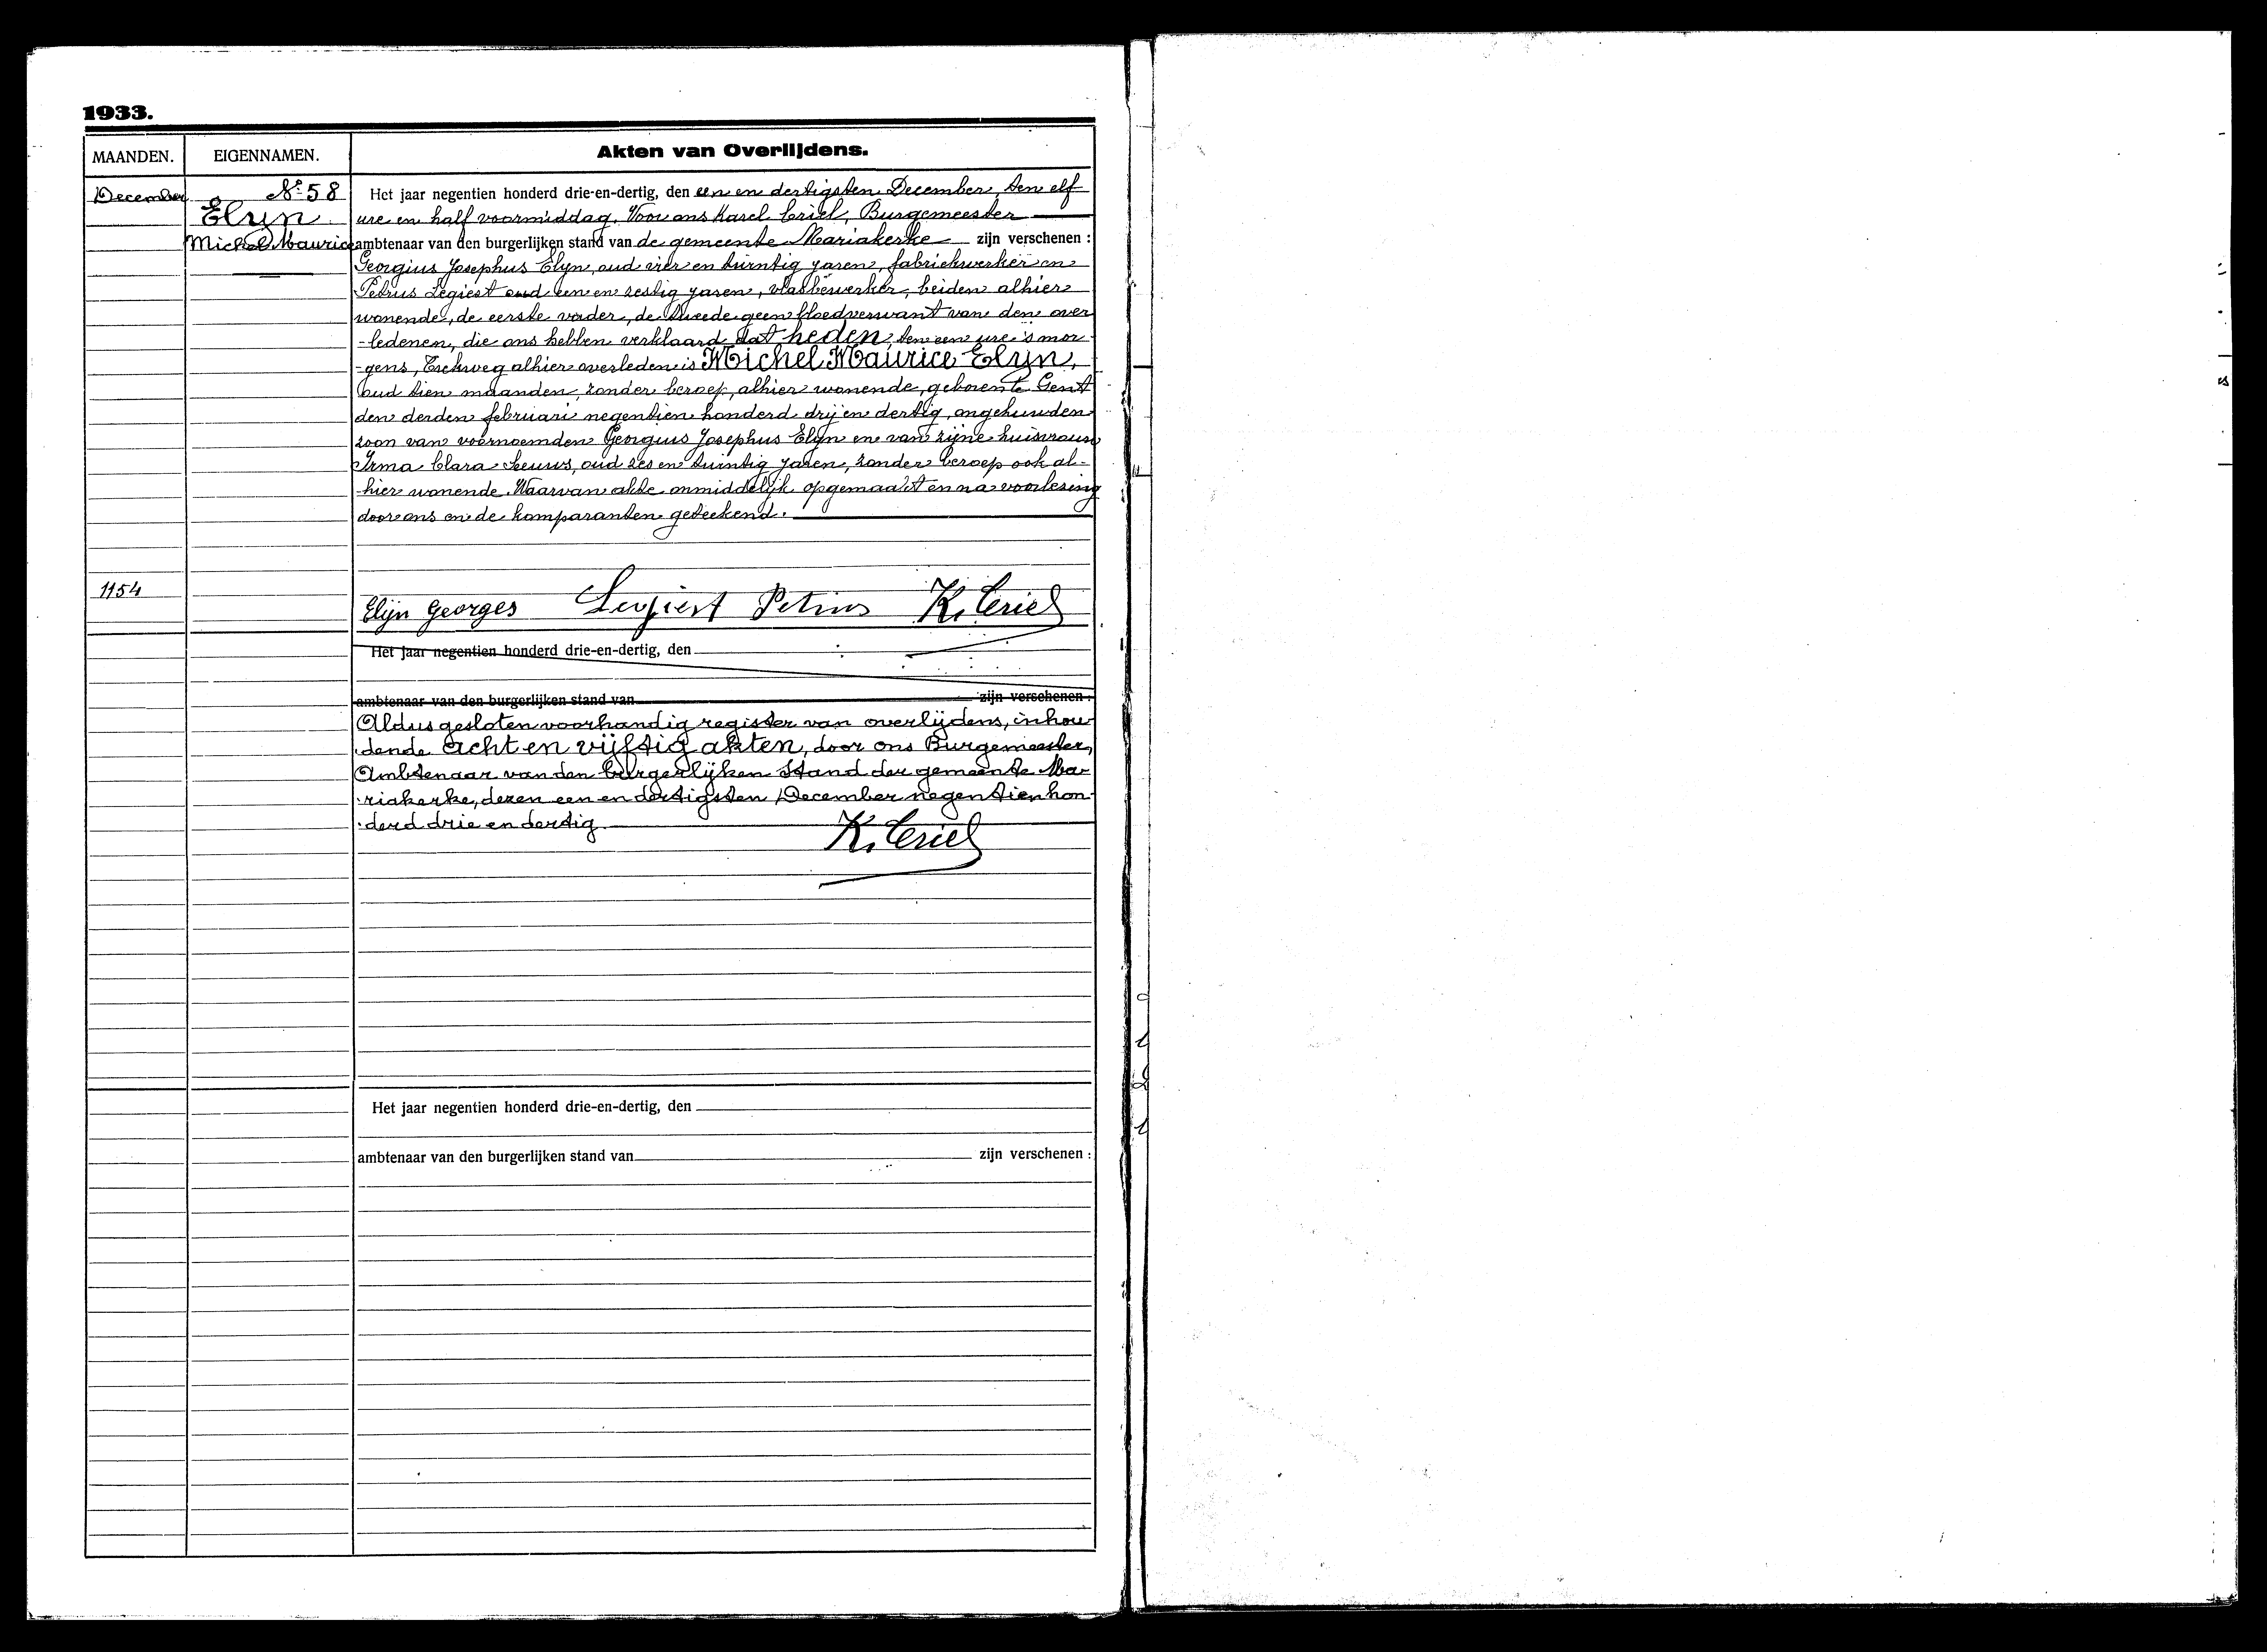 1933.
MAANDEN.
EIGENNAMEN.
Akten van Overlijdens.
December
Nº 58
Elyn
Michel Maurice
Het jaar negentien honderd drie-en-dertig, den een en dertigsten December, ten elf
ure en half voormiddag. Voor ons Karel Criel, Burgemeester
ambtenaar van den burgerlijken stand van de gemeente Mariakerke zijn verschenen :
Georgius Josephus Elyn, oud vier en twintig jaren, fabriekwerker en
Petrus Legiest oud een en zestig jaren, vlasbewerker, beiden alhier
wonende, de eerste vader, de tweede geen bloedverwant van den over
-ledenen, die ons hebben verklaard dat heden, ten een ure 's mor
-gens, alhier overleden is Michel Maurice Elyn,
oud tien maanden, zonder beroep, alhier wonende, geboren te Gent
den derden februari negentien honderd drij en dertig, ongehuwden
zoon van voornoemden Georgius Josephus Elyn en van zijne huisvrouw
Irma Clara oud zes en twintig jaren, zonder beroep ook al-
-hier wonende. Waarvan akte onmiddelijk opgemaakt en na voorlezing
door ons en de komparanten geteekend.
1154
Elijn Georges Legiest Petrus K. Criel
Het jaar negentien honderd drie-en-dertig, den
ambtenaar van den burgerlijken stand van zijn verschenen :
Aldus gesloten voorhandig register van overlijdens, inhou-
dende acht en vijftig akten, door ons Burgemeester,
Ambtenaar van den burgerlijken Stand der gemeente Ma-
-riakerke, dezen een en dertigsten December negentien hon-
-derd drie en dertig
K. Criel
Het jaar negentien honderd drie-en-dertig, den
ambtenaar van den burgerlijken stand van zijn verschenen :